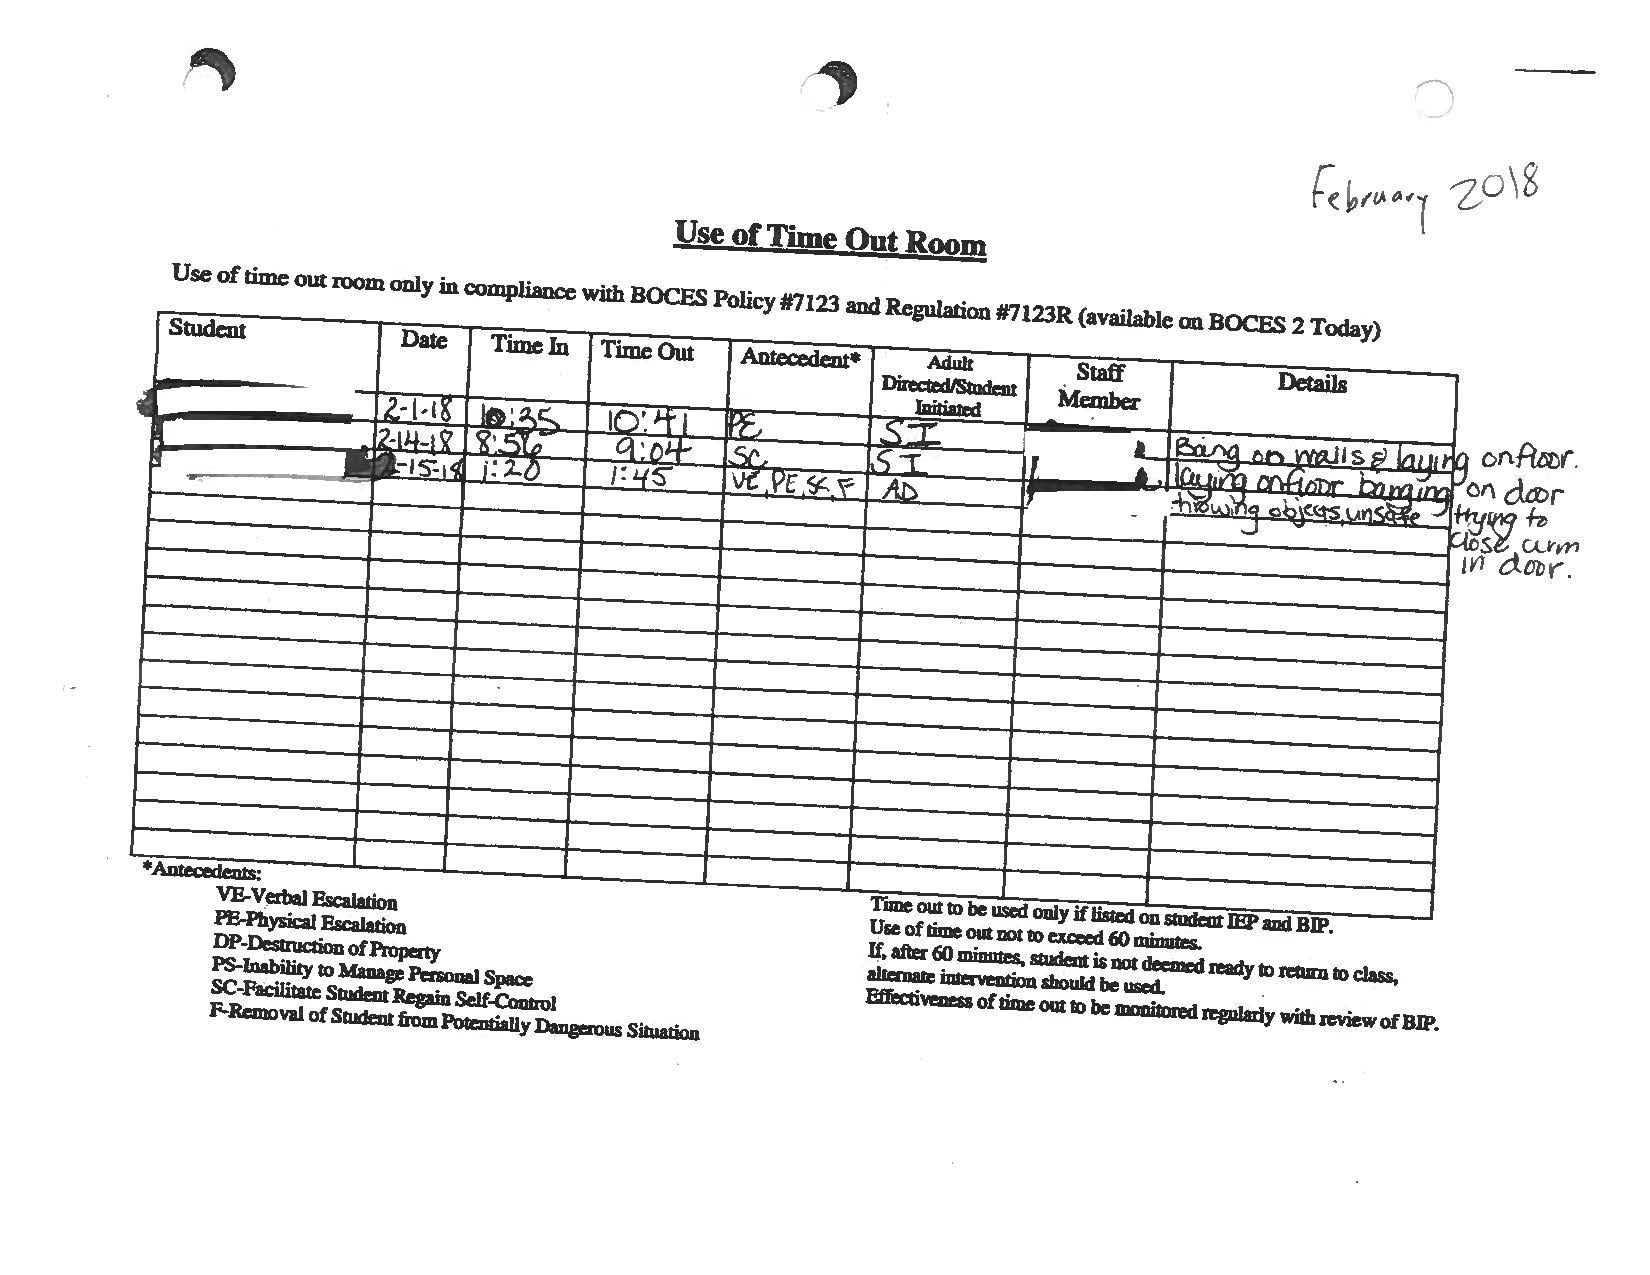 February 2018
Use of Time Out Room
Use of time out room only in compliance with BOCES Policy #7123 and Regulation #7123R (available on BOCES 2 Today)
Student Date Time In Time Out Antecedent* Adult Directed/Student Initiated Staff Member Details
2-1-18 10:35 10:41 PE SI Bang on walls & laying on floor.
2-14-18 8:56 9:04 SC SI laying on floor banging on door
2-15-18 1:28 1:45 VE, PE, SC, F AD throwing objects, unsafe trying to
close arm
in door.
*Antecedents:
VE-Verbal Escalation
PE-Physical Escalation
DP-Destruction of Property
PS-Inability to Manage Personal Space
SC-Facilitate Student Regain Self-Control
F-Removal of Student from Potentially Dangerous Situation
Time out to be used only if listed on student IEP and BIP.
Use of time out not to exceed 60 minutes.
If, after 60 minutes, student is not deemed ready to return to class,
alternate intervention should be used.
Effectiveness of time out to be monitored regularly with review of BIP.